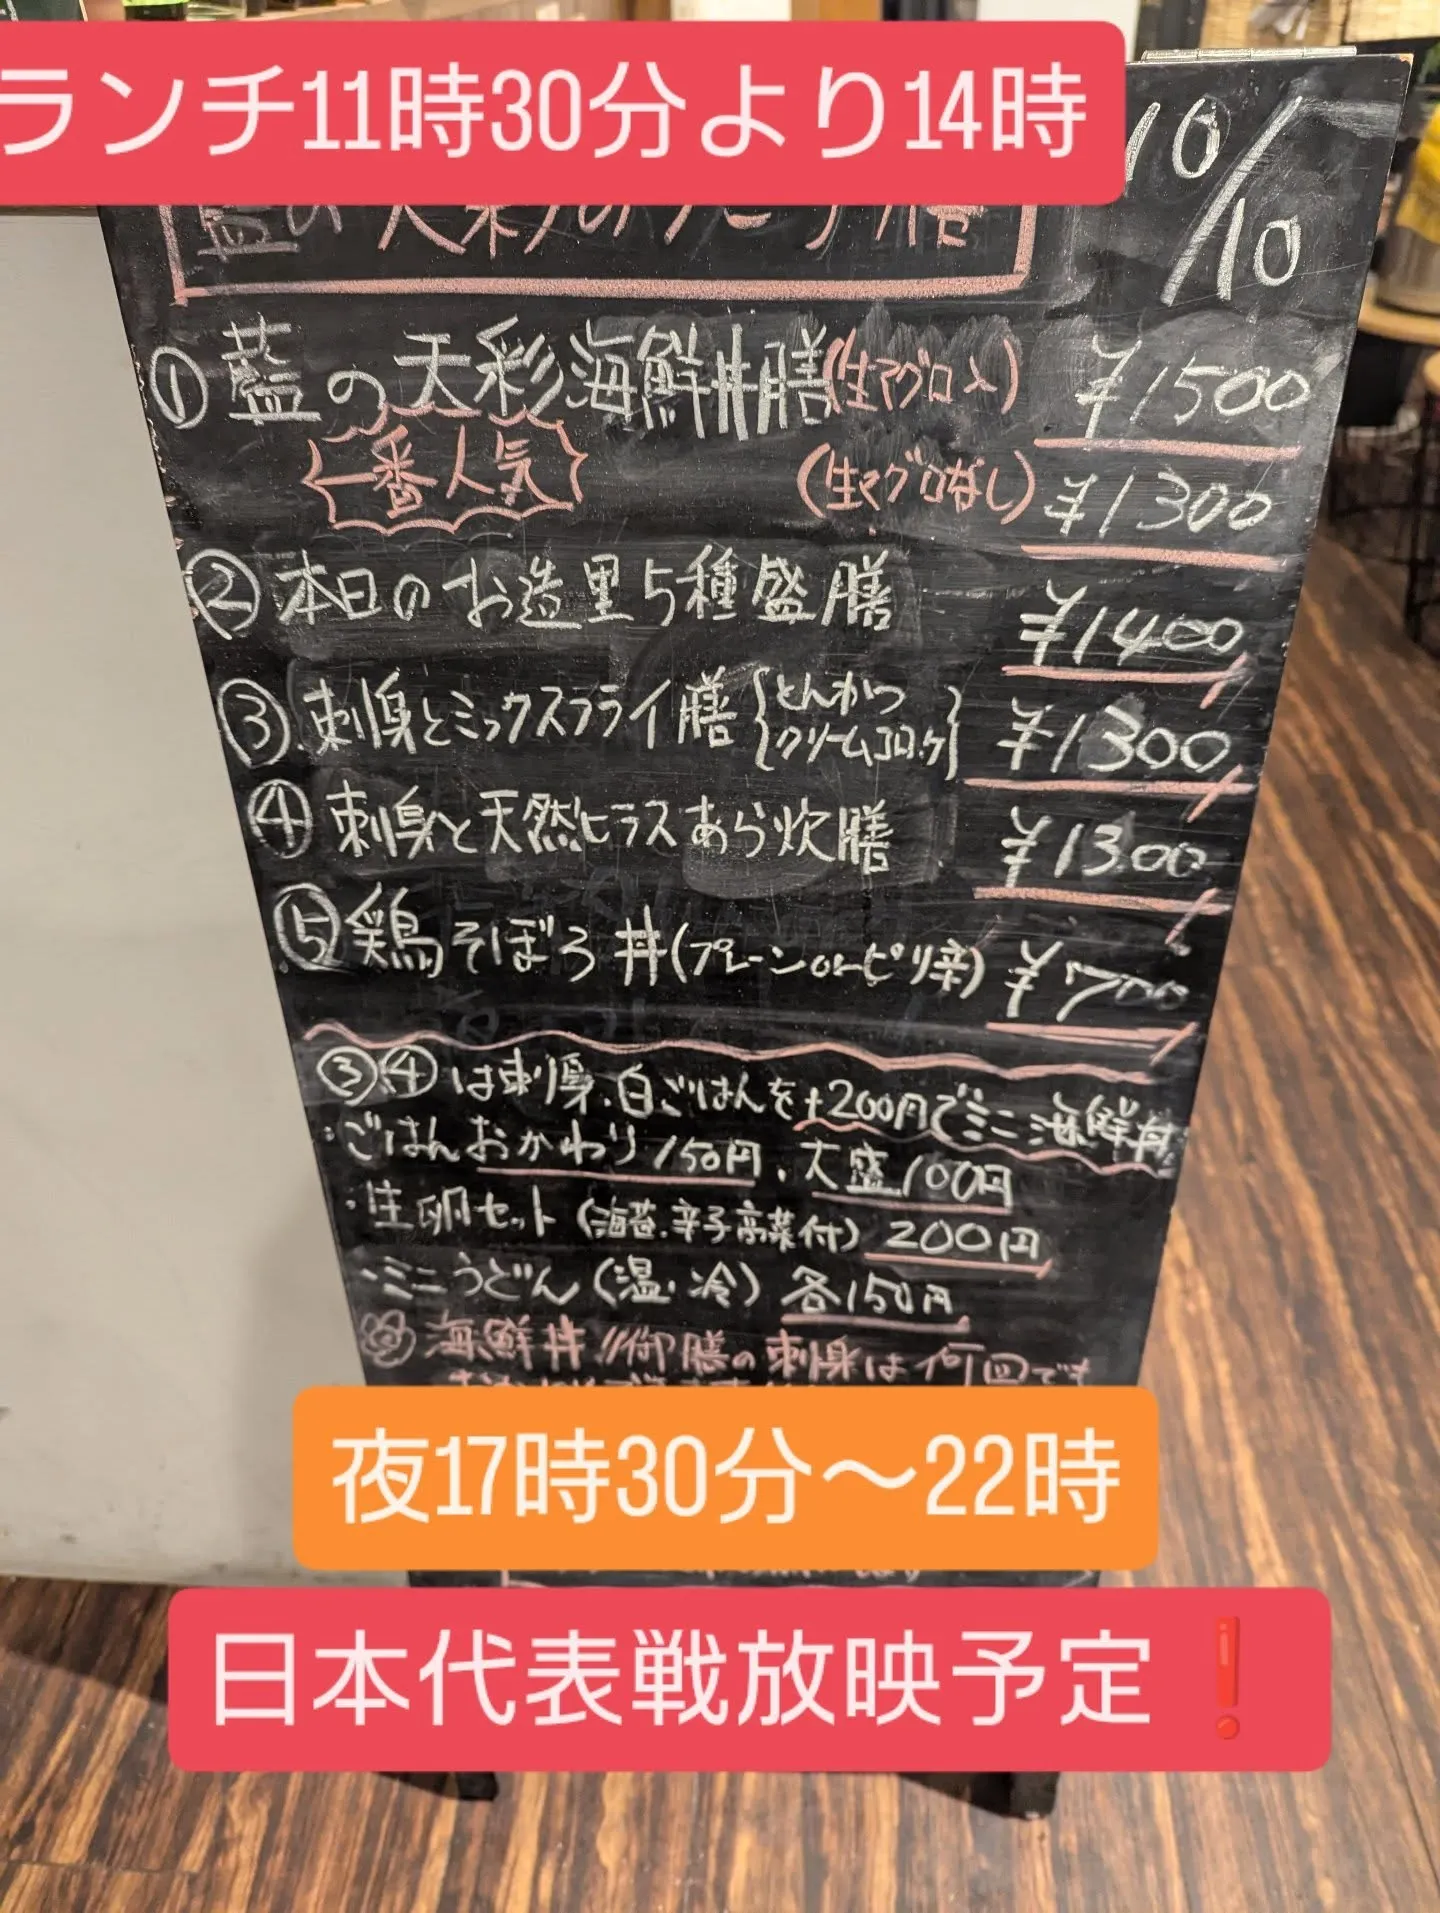 ランチ11時30分より14時
10/10
藍の天彩のランチ膳
①藍の天彩海鮮丼膳(生マグロ入) ¥1500
一番人気
(生マグロなし) ¥1300
②本日のお造里5種盛膳 ¥1400
③刺身とミックスフライ膳{とんかつ クリームコロッケ} ¥1300
④刺身と天然ヒラスあら炊膳 ¥1300
⑤鶏そぼろ丼(プレーンorピリ辛) ¥700
③④は刺身、白ごはんを+200円でミニ海鮮丼
・ごはんおかわり150円、大盛100円
・生卵セット(海苔、辛子高菜付) 200円
・ミニうどん(温・冷) 各150円
海鮮丼、御膳の刺身は何回でも
夜17時30分〜22時
日本代表戦放映予定❗